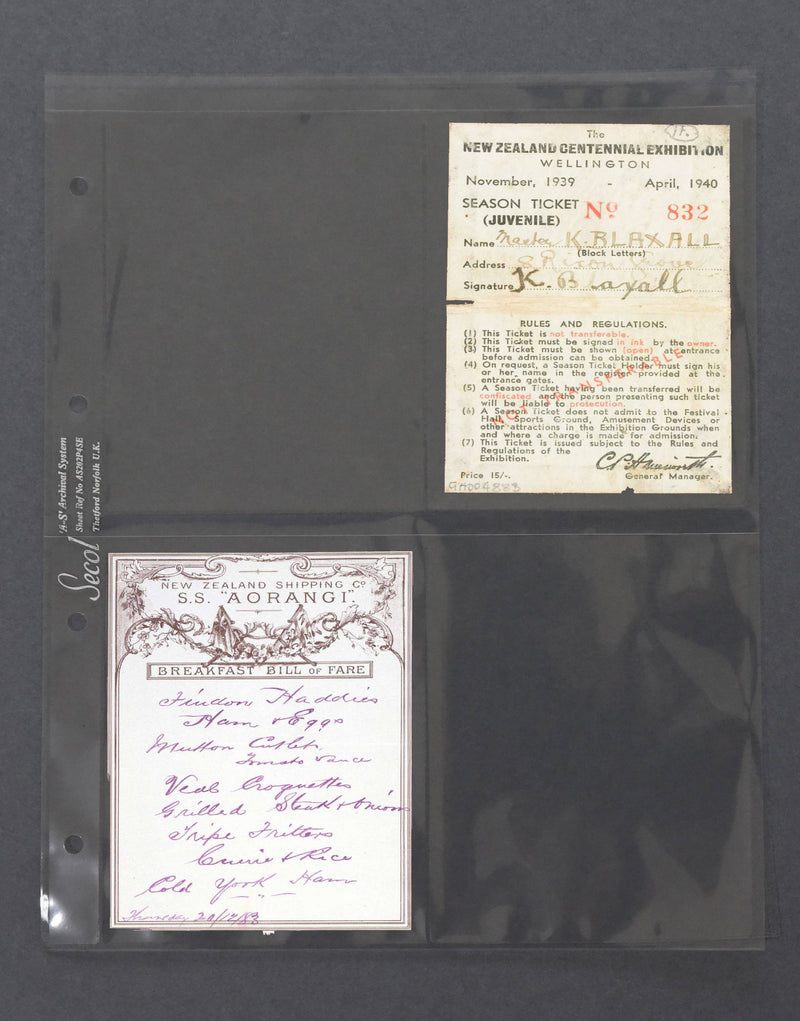 1F.
The
NEW ZEALAND CENTENNIAL EXHIBITION
WELLINGTON
November, 1939 - April, 1940
SEASON TICKET
(JUVENILE) No 832
Name Master K. BLAXALL
(Block Letters)
Address 8 Grove
Signature K. Blaxall
RULES AND REGULATIONS.
(1) This Ticket is not transferable.
(2) This Ticket must be signed in ink by the owner.
(3) This Ticket must be shown (open) at entrance
before admission can be obtained.
(4) On request, a Season Ticket holder must sign his
or her name in the register provided at the
entrance gates.
(5) A Season Ticket having been transferred will be
confiscated and the person presenting such ticket
will be liable to protecution.
(6) A Season Ticket does not admit to the Festival
Hall, Sports Ground, Amusement Devices or
other attractions in the Exhibition Grounds when
and where a charge is made for admission.
(7) This Ticket is issued subject to the Rules and
Regulations of the
Exhibition.
NOT TRANSFERABLE
Price 15/-. General Manager.
GH004883
Secol
'A-S' Archival System
Sheet Ref No AS202P4SE
Thetford Norfolk U.K.
NEW ZEALAND SHIPPING Co
S.S. "AORANGI".
BREAKFAST BILL OF FARE
Findon Haddies
Ham & Eggs
Mutton Cutlets
Tomato Sauce
Veal Croquettes
Grilled Steak & Onions
Tripe Fritters
Currie & Rice
Cold York Ham
Thursday 20/12/83